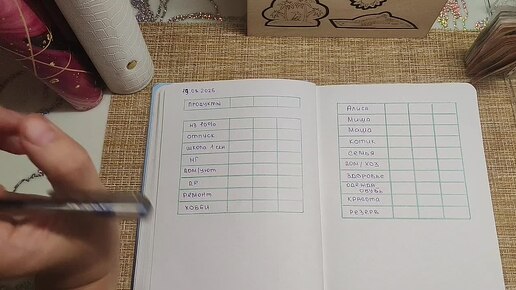 19.03.2026
ПРОДУКТЫ
НЗ 10%
ОТПУСК
ШКОЛА 1 СЕН
НГ
ДОМ/УЮТ
ДР
РЕМОНТ
ХОББИ
АЛИСА
МИША
МАША
КОТИК
СЕМЬЯ
ДОМ/ХОЗ
ЗДОРОВЬЕ
ОДЕЖДА
ОБУВЬ
КРАСОТА
РЕЗЕРВ